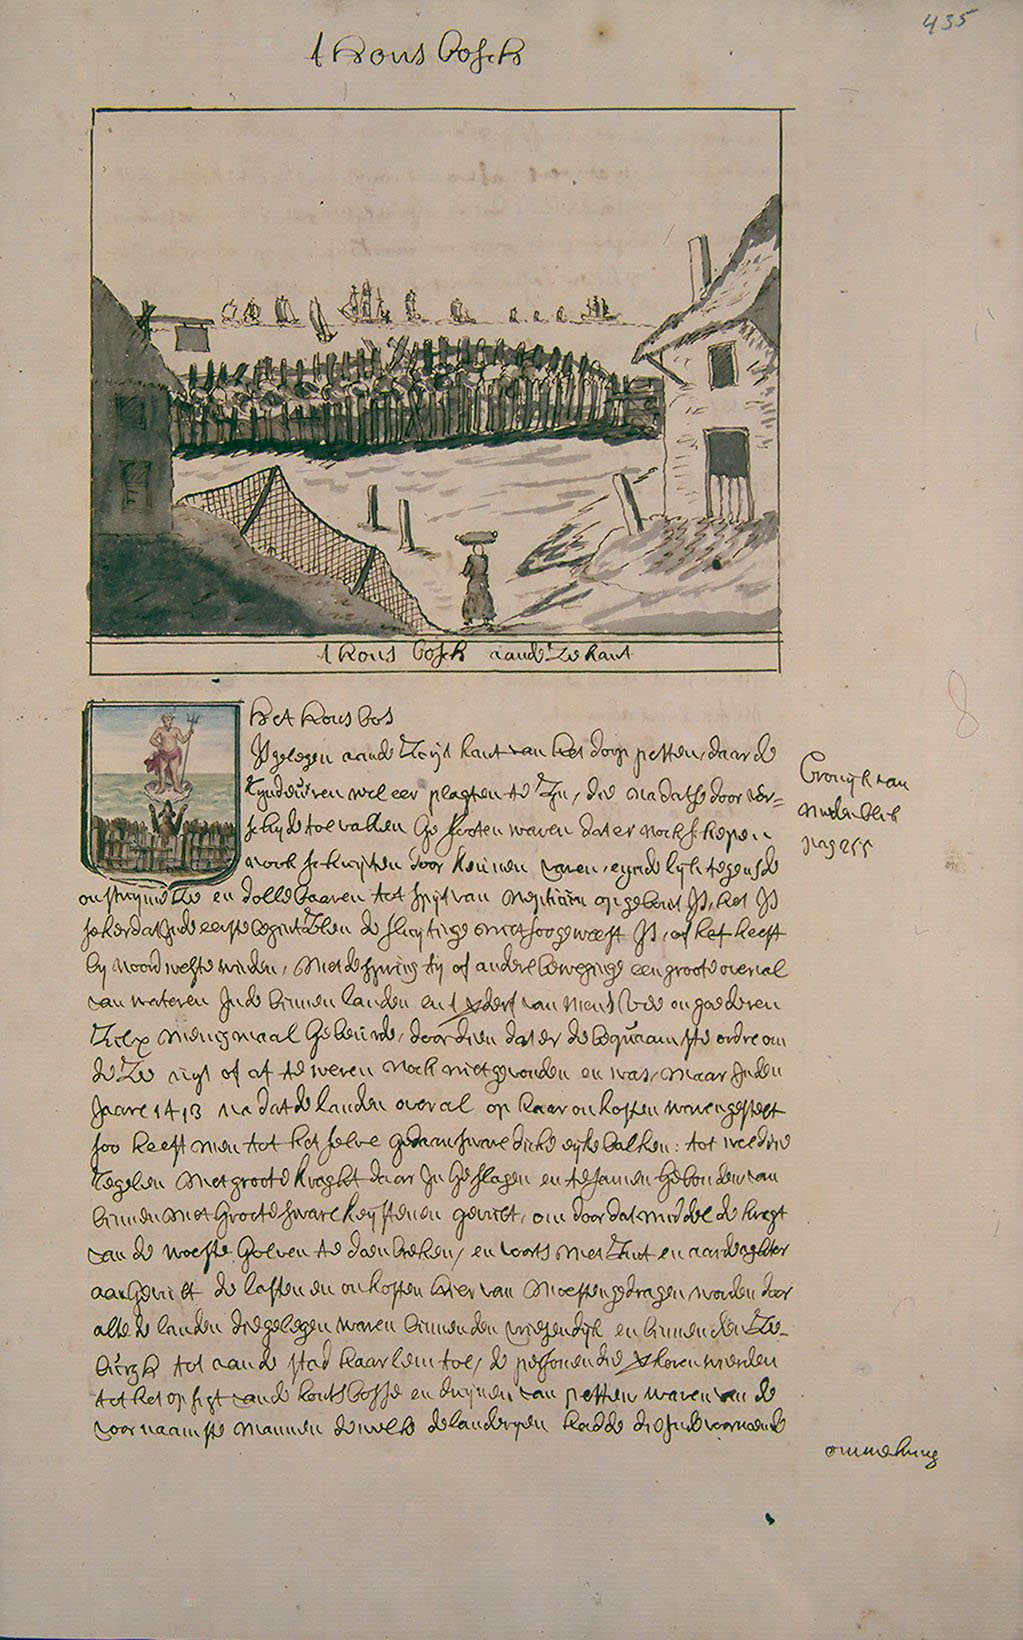 435
t Hons bosch
t Hons bosch aande Zekant
Het Hons bos
Is gelegen aande Zeijt kant van het dorp petten, daar de
Zijnduinen wel eer plagten te Zijn, die nadatse door ver=
schijde toevallen geschoten waren dat er noch schepen
noch schuijten door konnen varen, eijndelijk tegens de
onstuijmige Ze en dolle baaren tot spijt van Neptuin opgebout Is, het Is
seker dat Inde eerste begintZelen de sluijtinge niet soo geweest Is, of het heeft
bij noordweste winden, met de spring tij of andere beweginge een groote overval
van wateren Inde binnen landen en t verderf van mens Vee en goederen
Zulx menigmaal gebeurde, door dien dat er de bequaamste ordre om
de Ze uijt of af te weren noch niet gevonden en was, maar Inden
Jaare 1413 na dat de landen overal op haar onkosten waren gestelt
soo heeft men tot het selve gedaan sware dicke eijke balken: tot weedrse
regelen met groote kraght daar In geslagen en te samen gebonden van
binnen met groote sware keijstenen gevult, om door dat middel de kragt
van de woeste golven te doen breken, en voorts met Zant en aarde agter
aangevult de lasten en onkosten hier van moesten gedragen worden door
alle de landen die gelegen waren binnen den vriesendijk en binnen den Ze-
burgh tot aan de stad haarlem toe, de persoonen die verkoren wierden
tot het opsigt vande hontsbosse en duijnen van petten waren van de
voornaamste mannen dewelke de landerijen hadde die Inde voornoemde
Cronijk van
Medenblik
pag 255
ommekring